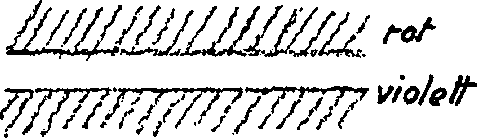 rot
violett